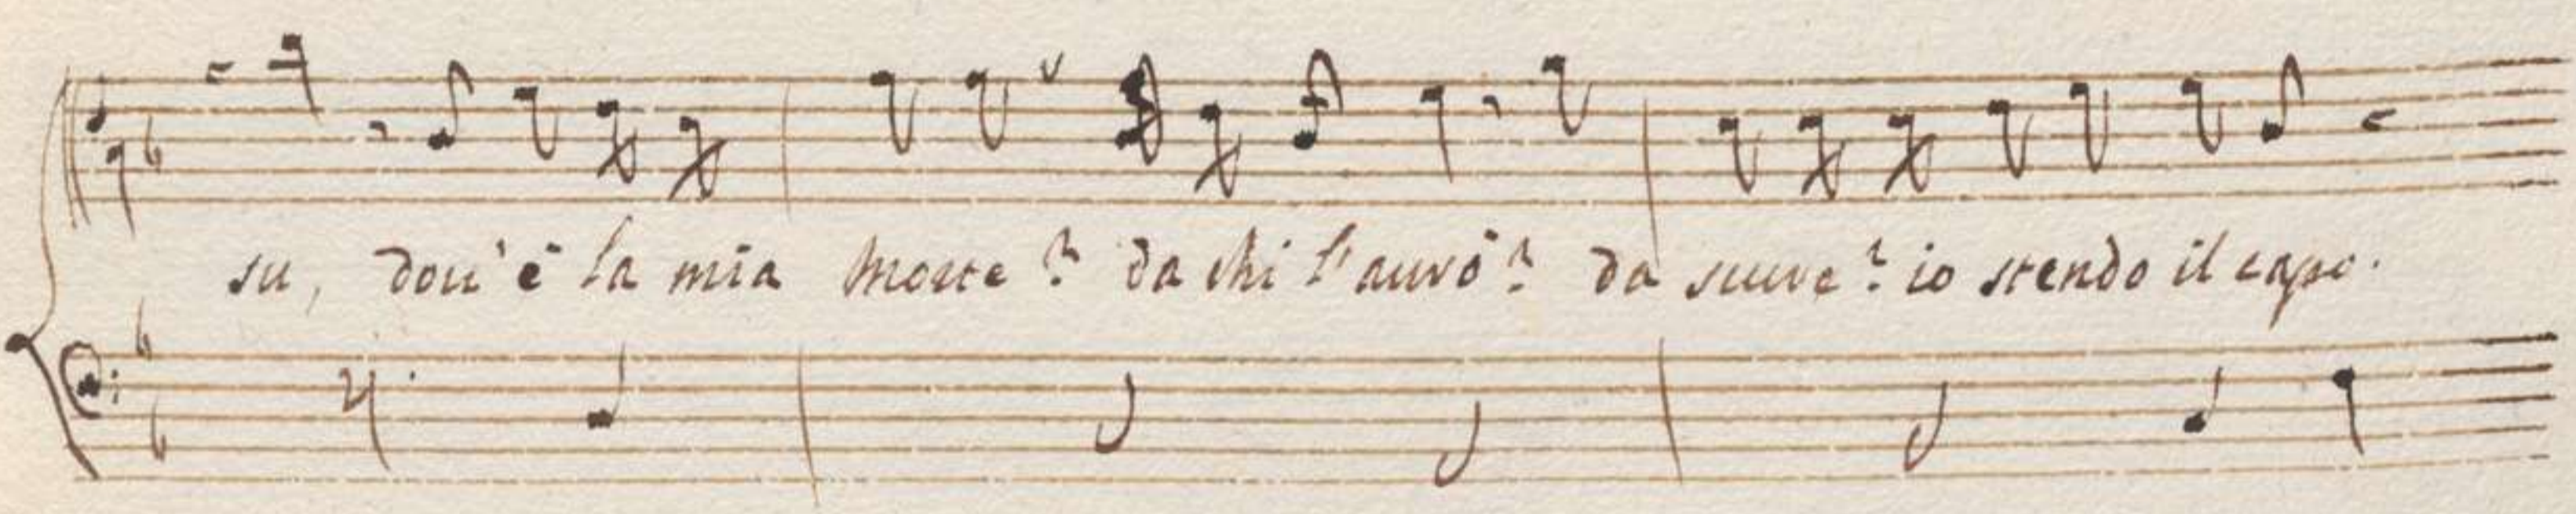 su, dou'è la mia morte? da chi l'aurò? da scure? io stendo il capo.